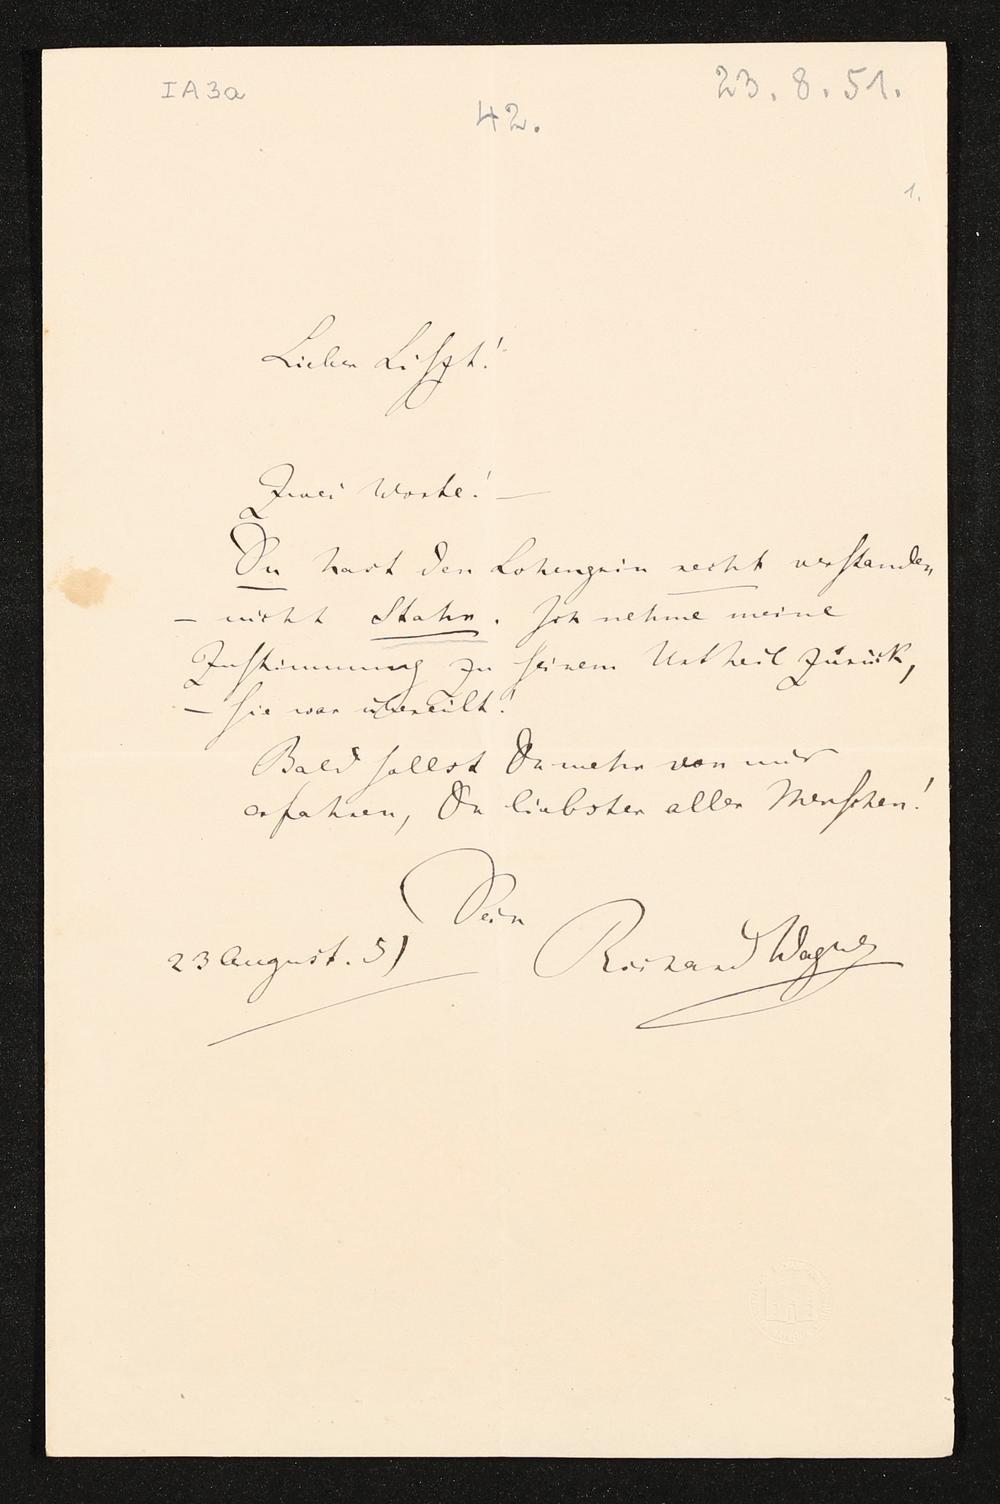 IA3a
23. 8. 51.
42.
1.
Lieber Liszt!
Zwei Worte! —
Du hast den Lohengrin recht verstanden,
– nicht Stahr. Ich nehme meine
Zustimmung zu seinem Urtheil zurück,
– sie war übereilt!
Bald sollst Du mehr von mir
erfahren, Du liebster aller Menschen!
Dein
23 August. 51
Richard Wagner